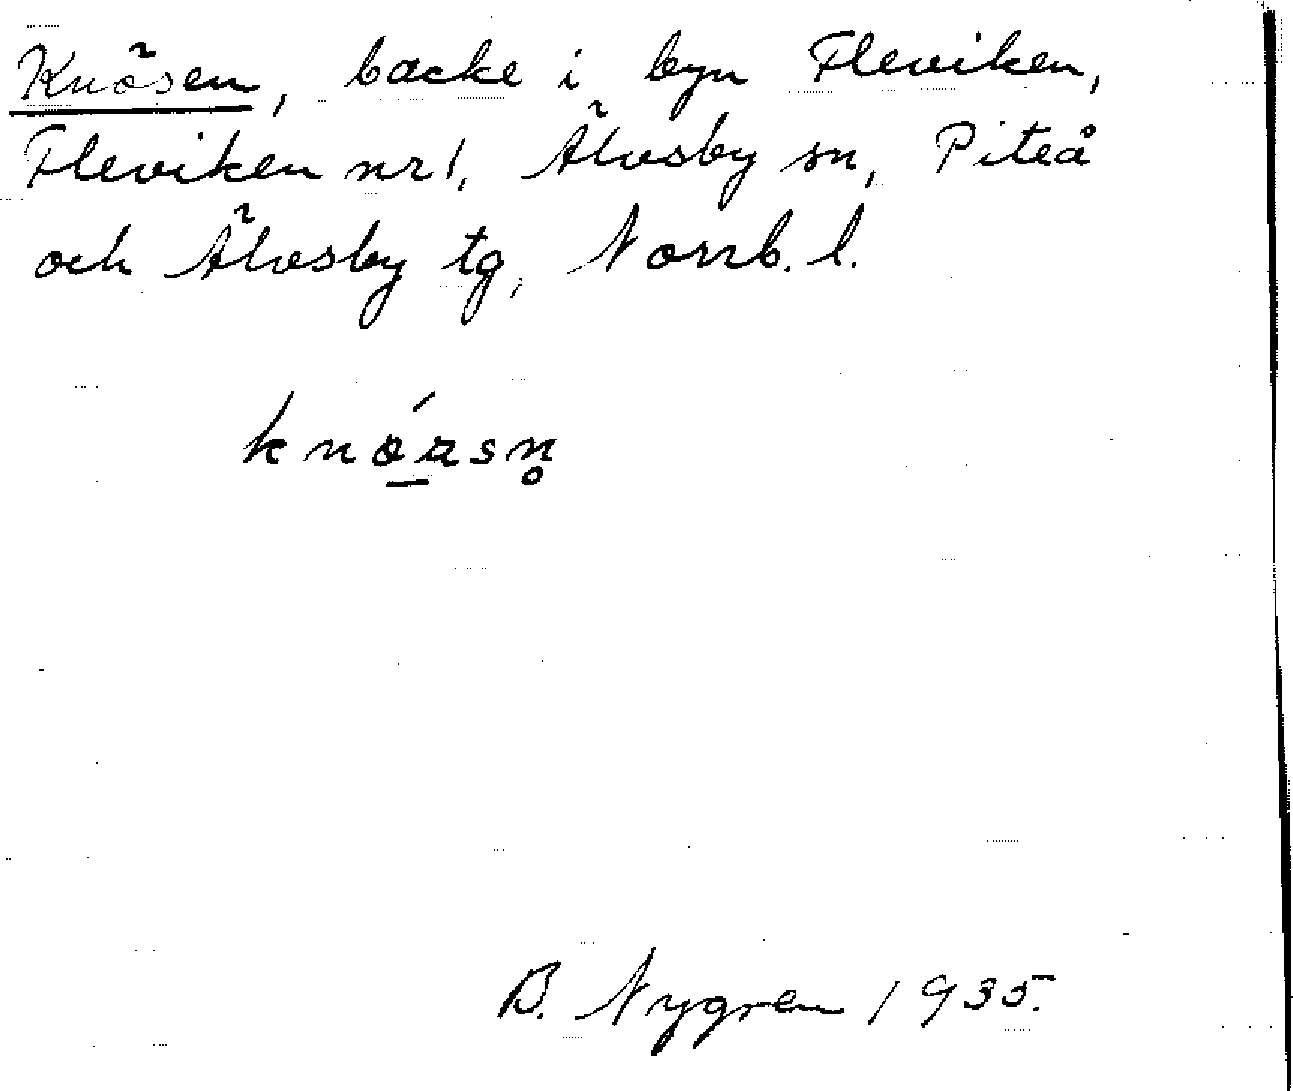 Knösen, backe i byn Fleviken,
Fleviken nr 1, Älvsby sn, Piteå
och Älvsby tg, Norrb. l.
B. Nygren 1935.